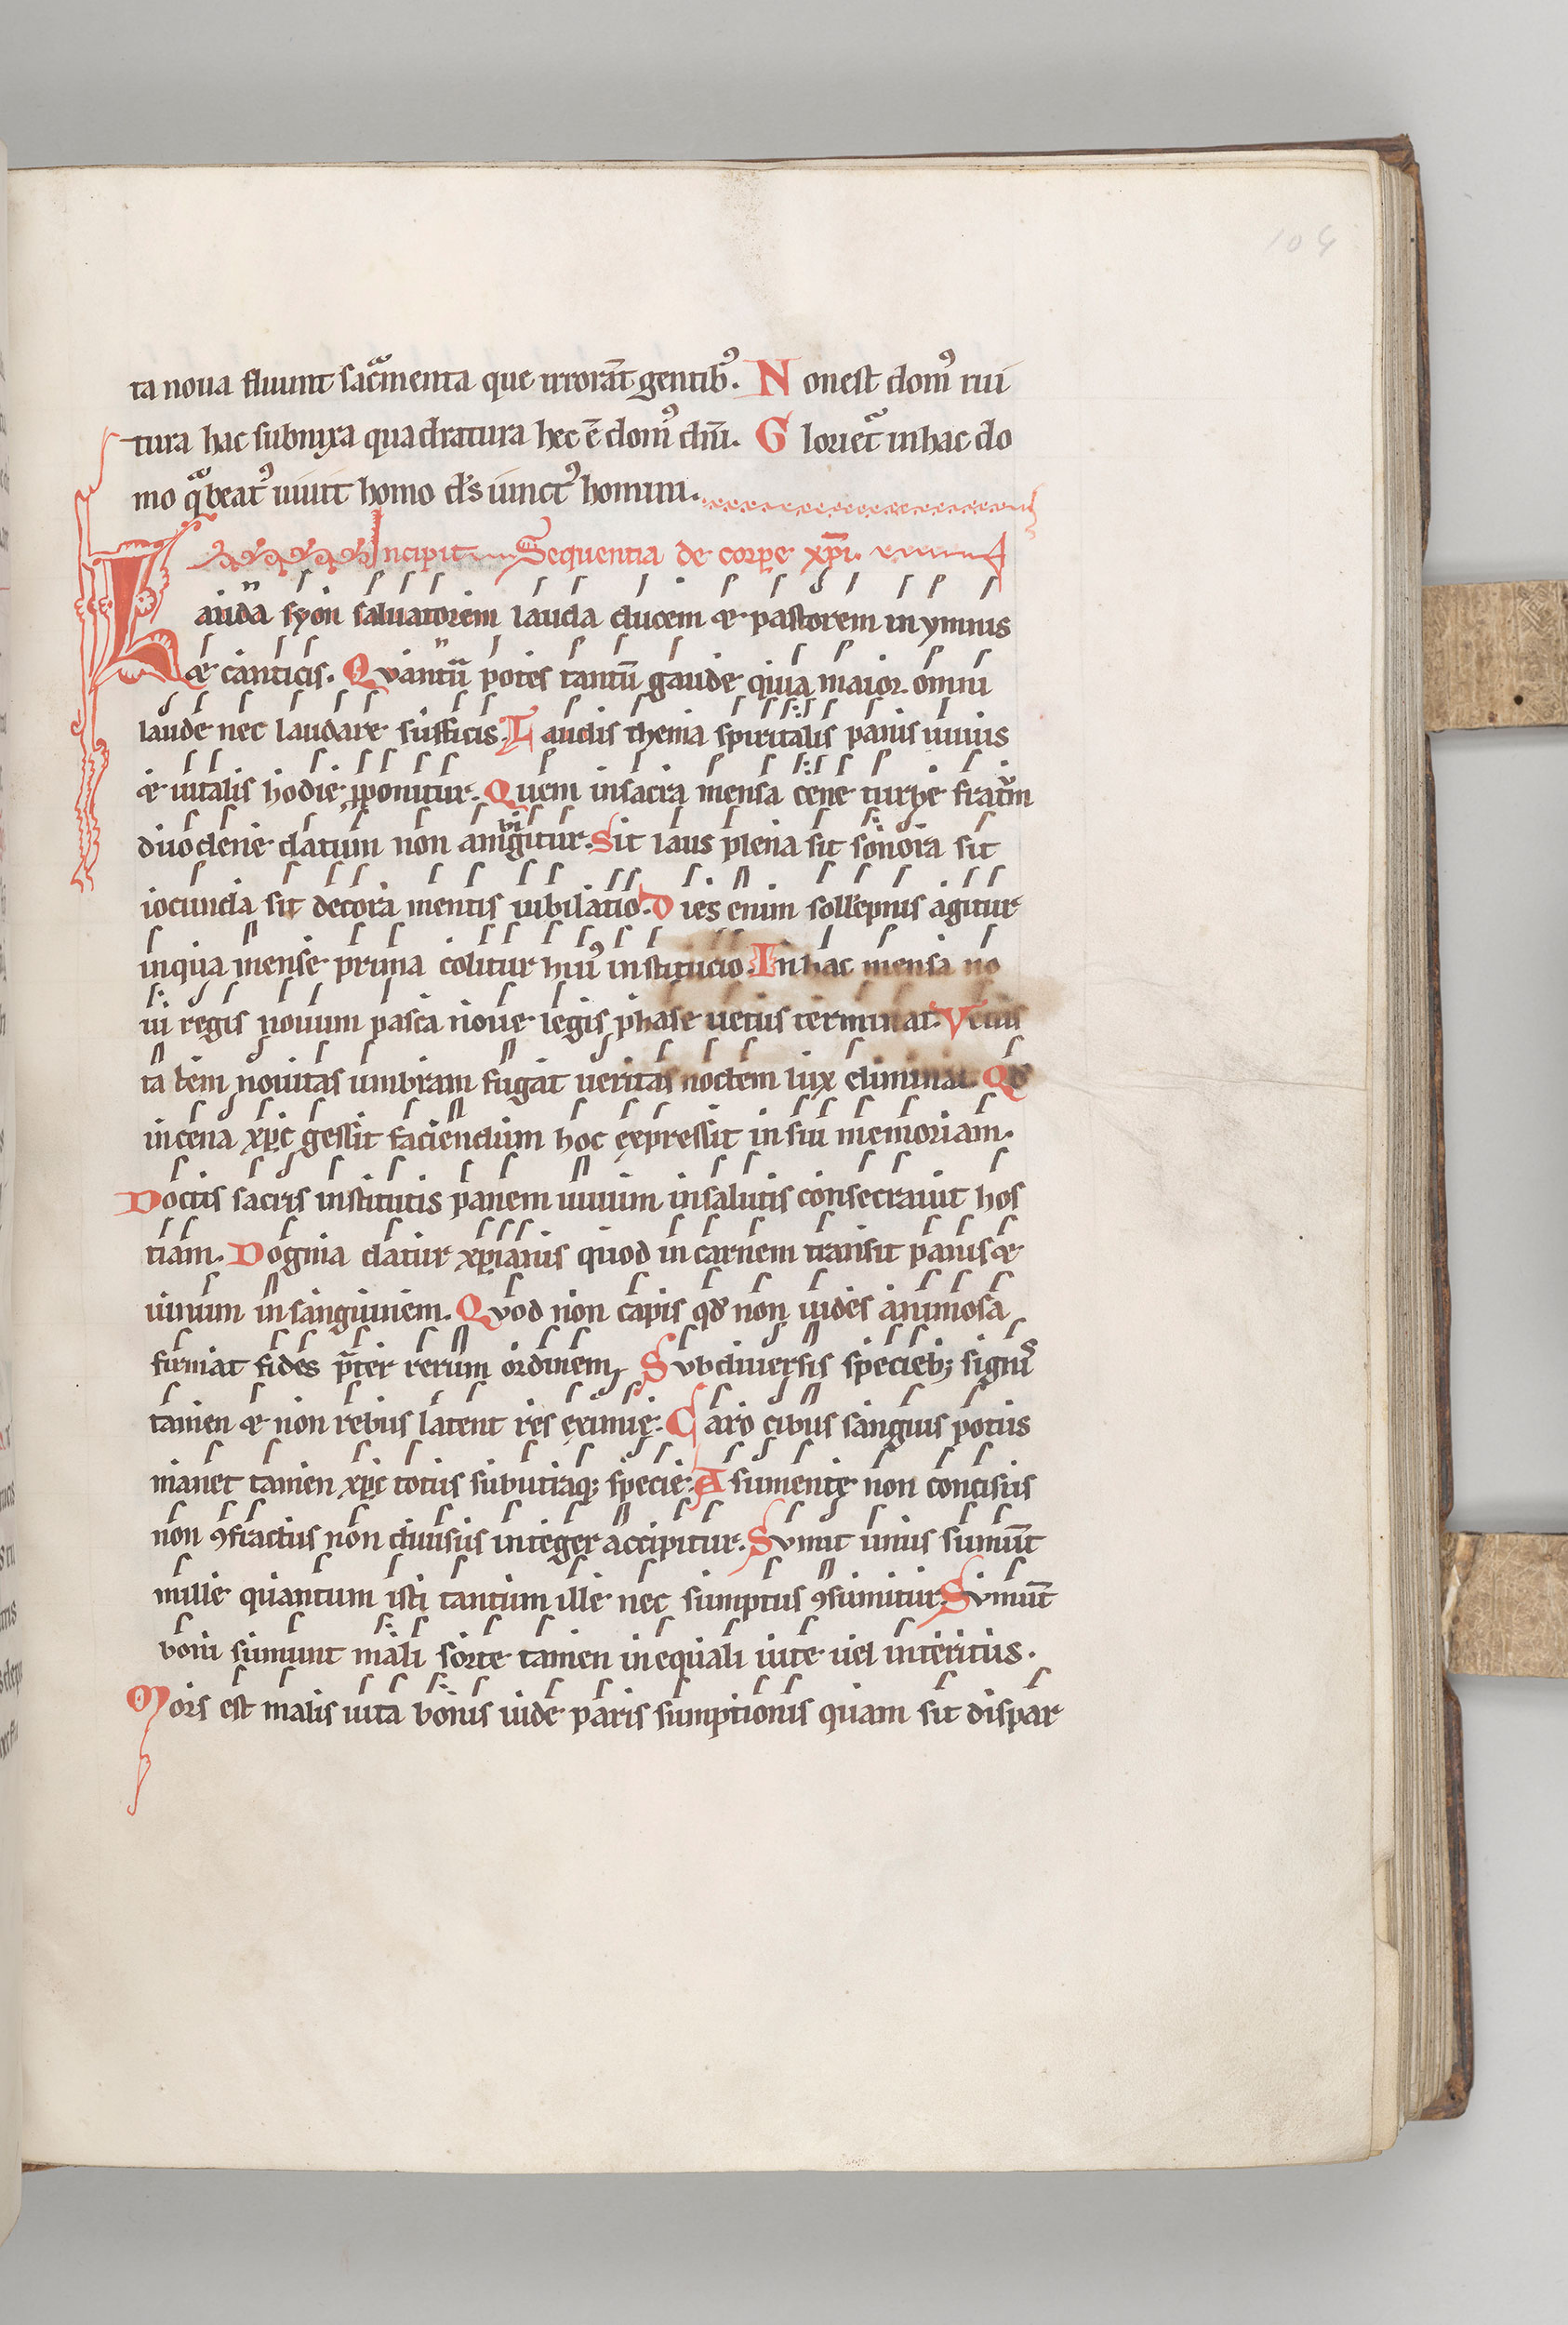 104
ta noua fluunt sac̃menta que irrorãt gentibꝰ. Non est domꝰ rui
tura hac subnixa quadratura hec ẽ domꝰ dñi. Gloriet᷑ in hac do
mo q̃ beatꝰ uiuit homo ds uinctꝰ homini.
Incipit Sequentia de corꝑe xp̃i.
Lauda syon saluatorem lauda ducem et pastorem in ymnis
et canticis. Quantũ potes tantũ gaude quia maior omni
laude nec laudare sufficis. Laudis thema spiritalis panis uiuus
et uitalis hodie ꝓponitur. Quem in sacra mensa cene turbe fratr̃m
duodene datum non ambigitur. Sit laus plena sit sonora sit
iocunda sit decora mentis iubilatio. Dies enim sollepnis agitur
in qua mense prima colitur huiꝰ institucio. In hac mensa no
ui regis nouum pasca noue legis phase uetus terminat. Vetus
ta tem nouitas umbram fugat ueritas noctem lux eliminat. Qd̛
in cena xp̃c gessit faciendum hoc expressit in sui memoriam.
Doctis sacris institutis panem uiuum in salutis consecrauit hos
tiam. Dogma datur xp̃ianis quod in carnem transit panis et
uinum in sanguinem. Quod non capis qd̛ non uides animosa
firmat fides p̃ter rerum ordinem. Sub diuersis speciebꝫ signis
tamen et non rebus latent res eximię. Caro cibus sanguis potus
manet tamen xp̃c totus sub utraqꝫ specie. A sumente non concisus
non ꝯfractus non diuisus integer accipitur. Sumit unus sumũt
mille quantum isti tantum ille nec sumptus ꝯsumitur. Sumũt
boni sumunt mali sorte tamen inequali uite uel interitus.
Mors est malis uita bonis uide paris sumptionis quam sit dispar